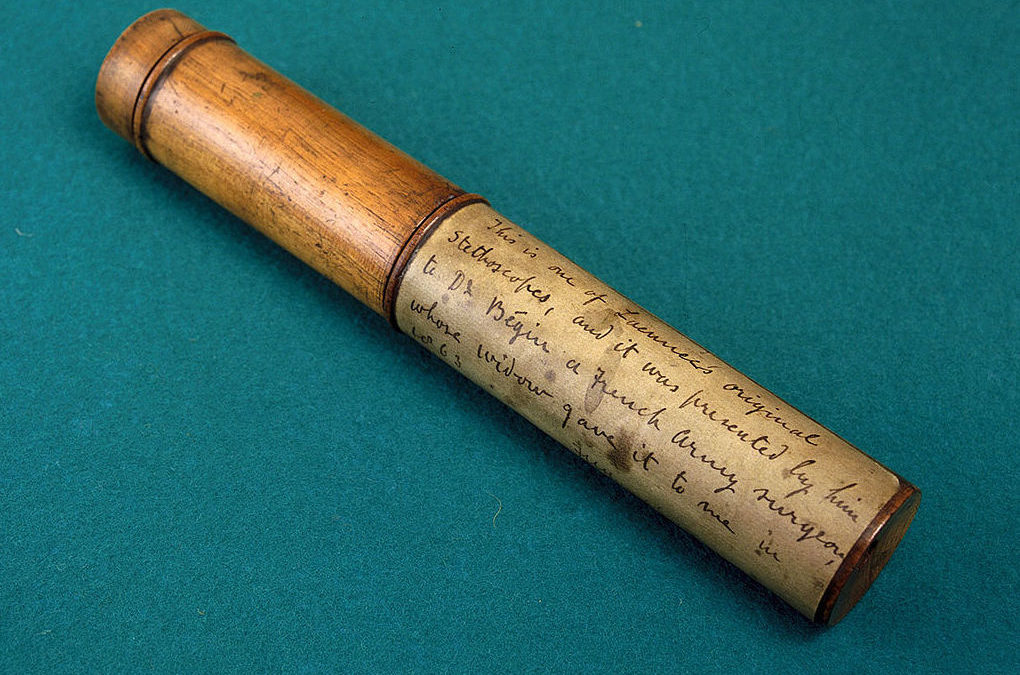 This is one of Laennec's original
stethoscopes, and it was presented by him
to Dr Bégin a French Army surgeon,
whose widow gave it to me in
1863.